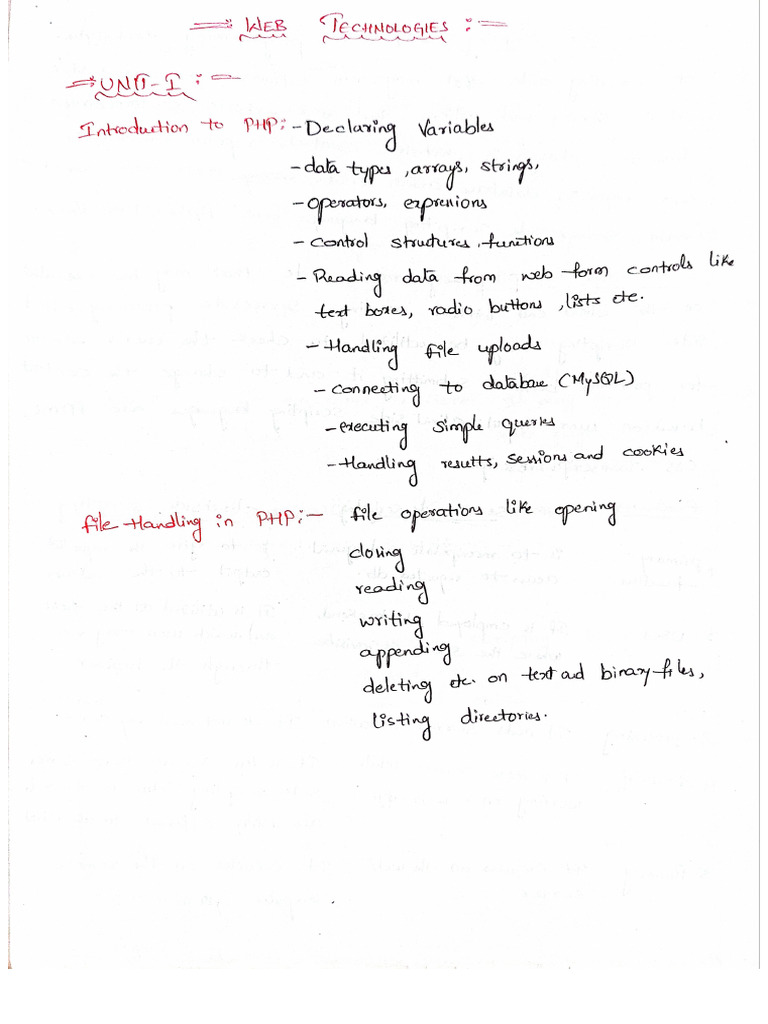 WEB TECHNOLOGIES :-
UNIT-I :-
Introduction to PHP:- -Declaring Variables
-data types, arrays, strings,
-operators, expressions
-control structures, functions
-Reading data from web form controls like
text boxes, radio buttons, lists etc.
-Handling file uploads
-connecting to database (MySQL)
-executing simple queries
-Handling results, sessions and cookies
file Handling in PHP:- file operations like opening
closing
reading
writing
appending
deleting etc. on text ad binary files,
listing directories.